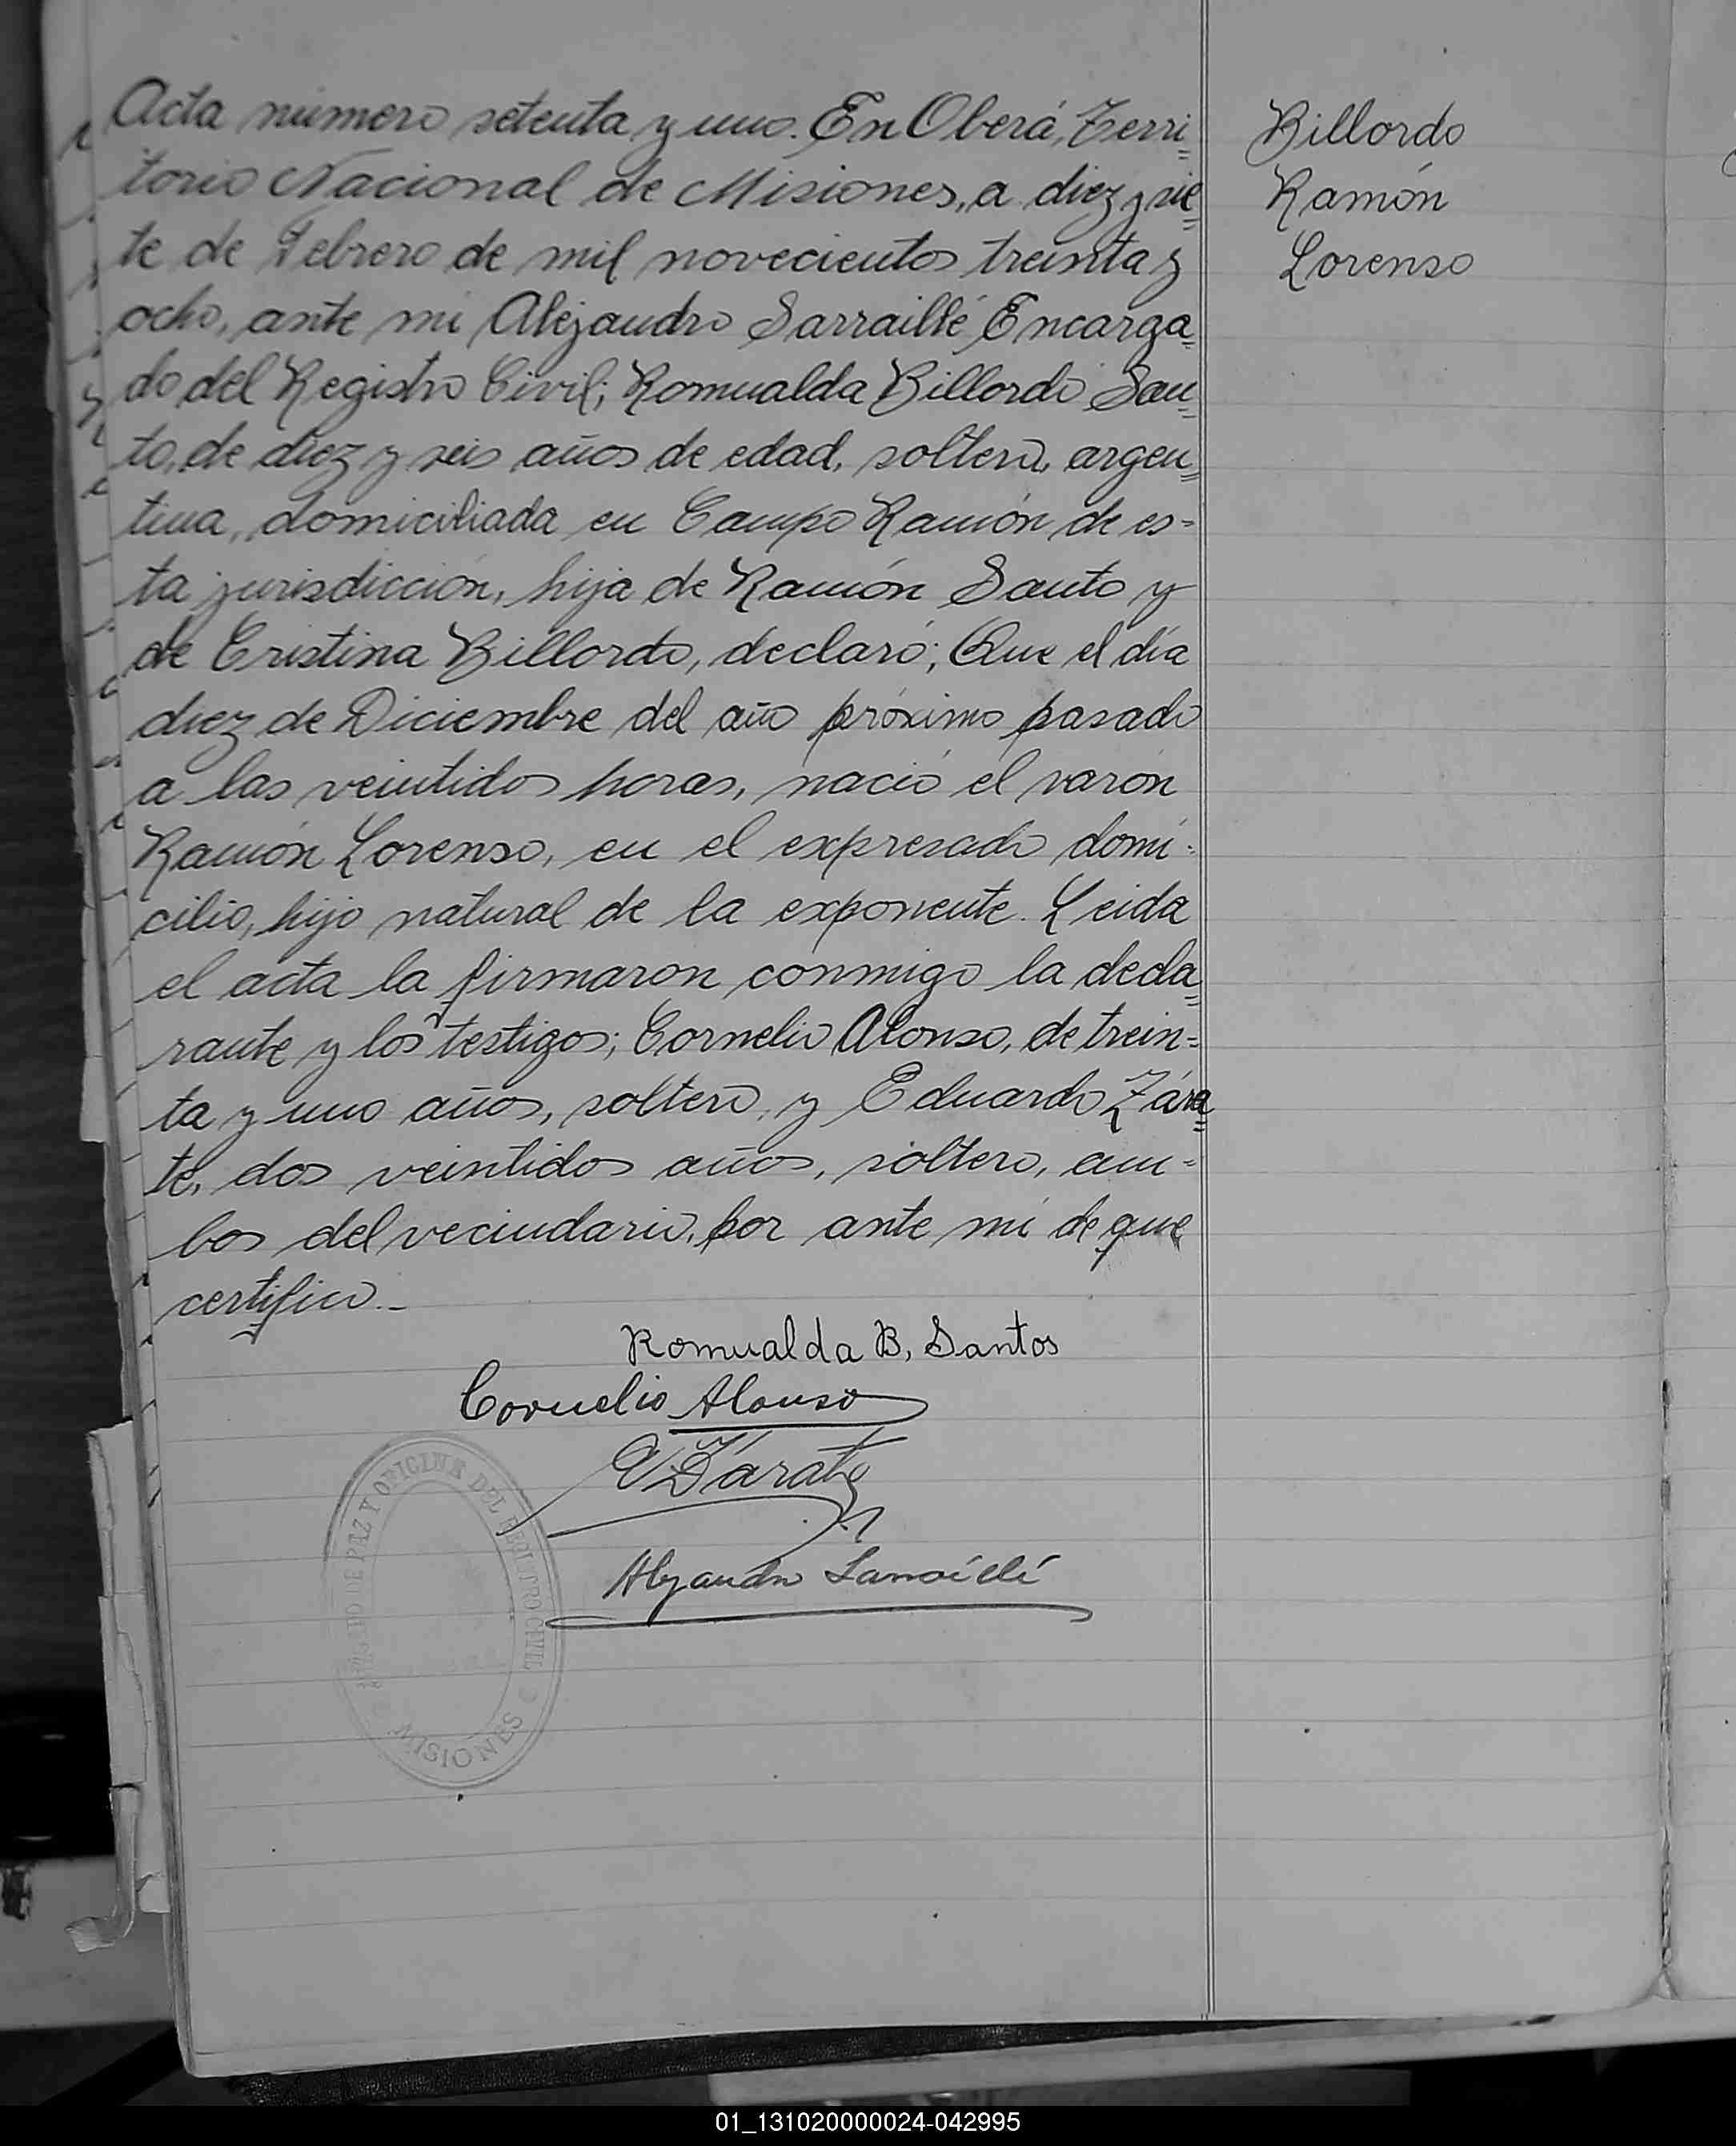 Acta número setenta y uno. En Oberá, Terri=
torio Nacional de Misiones, a diez y sie=
te de Febrero de mil novecientos treinta y
ocho, ante mi Alejandro Sarraillé Encarga=
do del Registro Civil; Romualda Billordo San=
to, de diez y seis años de edad, soltera, argen=
tina, domiciliada en Campo Ramón de es=
ta jurisdicción, hija de Ramón Santo y
de Cristina Billordo, declaró; Que el día
diez de Diciembre del año próximo pasado
a las veintidos horas, nació el varón
Ramón Lorenso, en el expresado domi=
cilio, hijo natural de la exponente. Leida
el acta la firmaron conmigo la decla=
rante y los testigos; Cornelio Alonso, de trein=
ta y uno años, soltero, y Eduardo Zára=
te, dos veintidos años, soltero, am=
bos del vecindario, por ante mí de que
certifico._
Romualda B. Santos
Cornelio Alonso
E Zárate
Alejandro Sarraillé
JUZGADO DE PAZ Y OFICINA DEL REGISTRO CIVIL
MISIONES
Billordo
Ramón
Lorenso
01_131020000024-042995